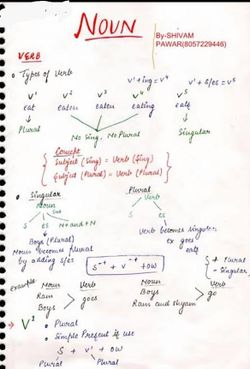 NOUN
By-SHIVAM
PAWAR(8057229446)
VERB
Types of Verb
V¹+ing=V⁴ V¹+S/es=V⁵
V¹ V² V³ V⁴ V⁵
eat eaten eaten eating eats
Plural No Sing, No Plural Singular
Concept
Subject (Sing) = Verb (Sing)
Subject (Plural) = Verb (Plural)
Singular Plural
Noun Verb
S es N+and+N
Boys (Plural) Verb becomes singular
Noun becomes plural ex goes
by adding s/es eats
S⁺ˢ + V⁻ˢ + OW
+ Plural
- Singular
example: Noun Verb Noun Verb
Ram goes Boys go
Boys Ram and Shyam
V¹ Plural
Simple Present is use
S + V¹ + OW
Plural Plural